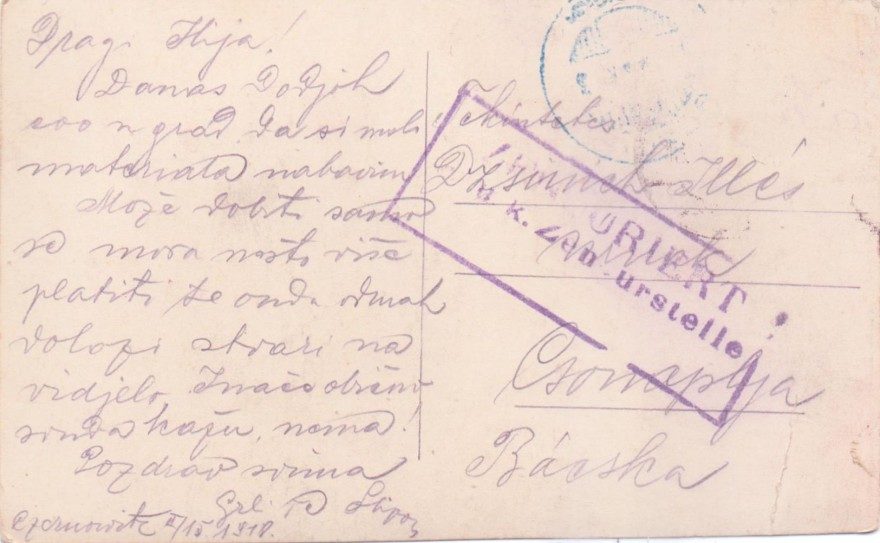 Dragi Ilija!
Danas Dodjoh
ovo u grad da si malo
materiala nabavim
Može dobiti samo
se mora nešto više
platiti te onda odmah
dolazi stvari na
vidjelo. Inače obično
svuda kažu, nema!
Pozdrav svima
Grli te Stipan
Czernowitz II/15. 1918.
Tekintetes
Illés
úrnak
Csonoplya
Bácska
ZENSURIERT!
k. k. Zensurstelle